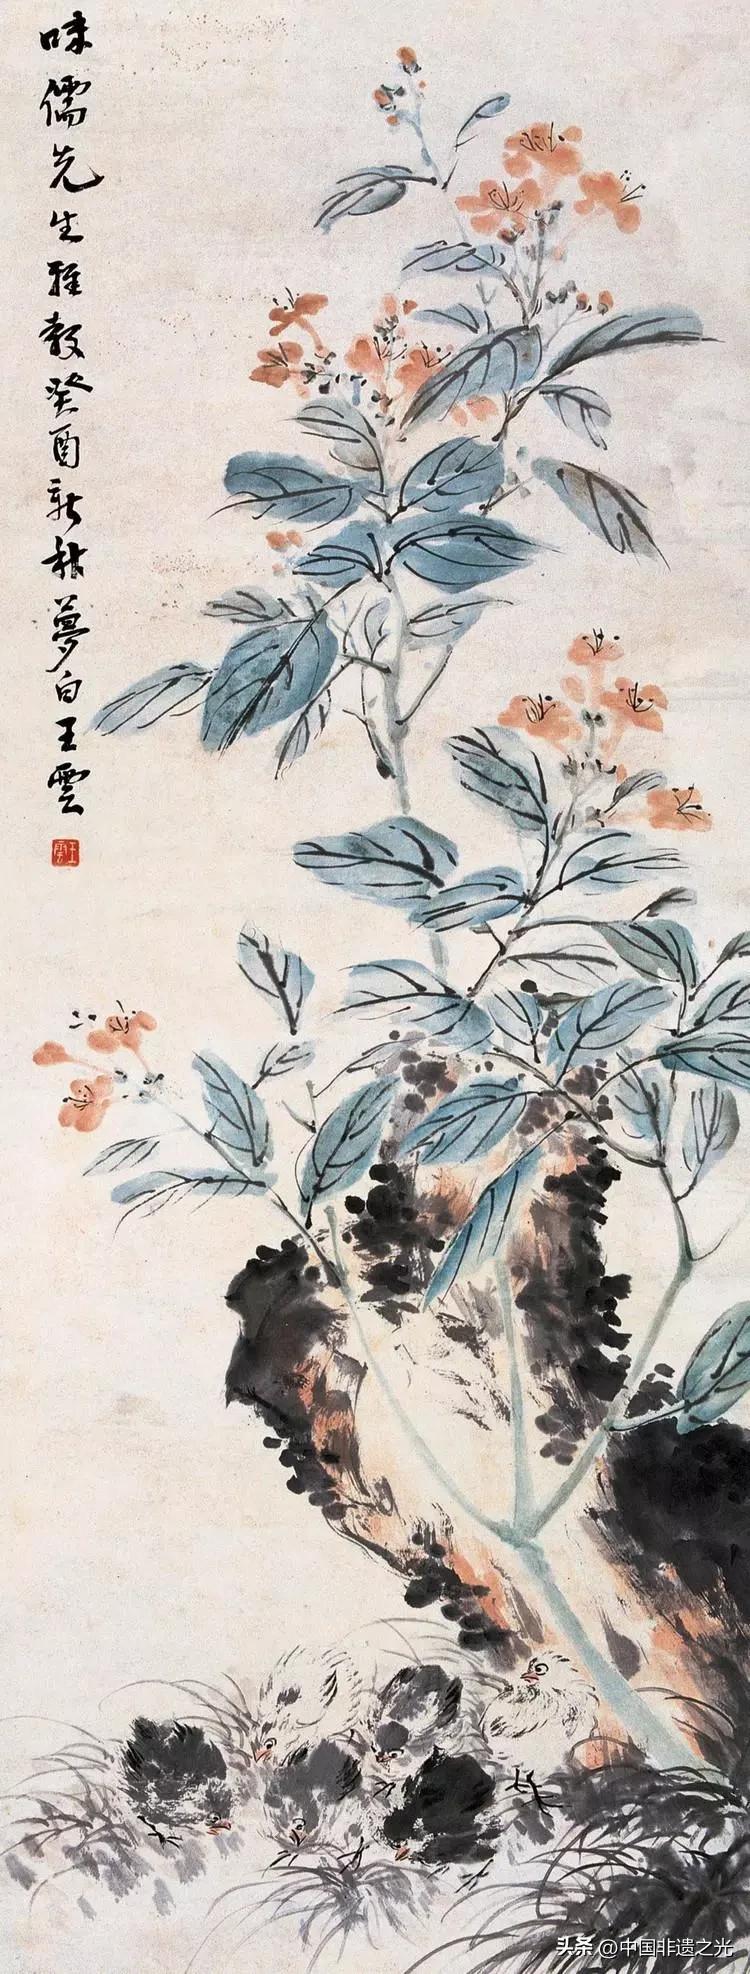 味儒先生雅教癸酉新秋夢白王雲
王雲
头条 @中国非遗之光